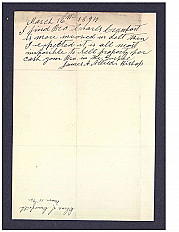 March 16th 1894
I find Bro Charls Crawfort
is more involved in debt then
I expected it is all most
impossible to sell property for
cash your Bro in the Gospel
James A Allred Bishop